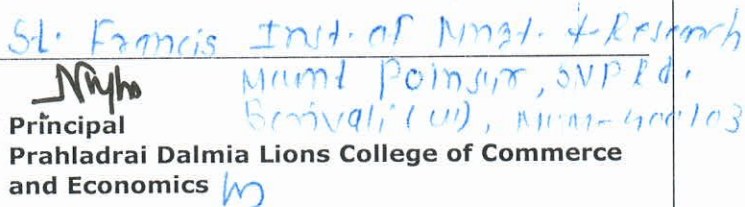 St. Francis Inst. of Mngt. & Research
Mount Poinsur, SVP Rd.
Borivali (W), Mum-400103
Principal
Prahladrai Dalmia Lions College of Commerce
and Economics